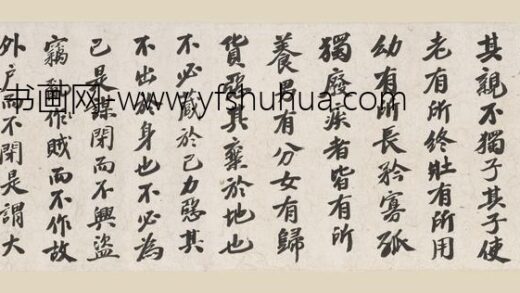 其親不獨子其子使
老有所終壯有所用
幼有所長矜寡孤
獨廢疾者皆有所
養男有分女有歸
貨惡其棄於地也
不必藏於己力惡其
不出於身也不必為
己是謀閉而不興盜
竊亂作賊而不作故
外戶而不閉是謂大
书画网-www.yfshuhua.com